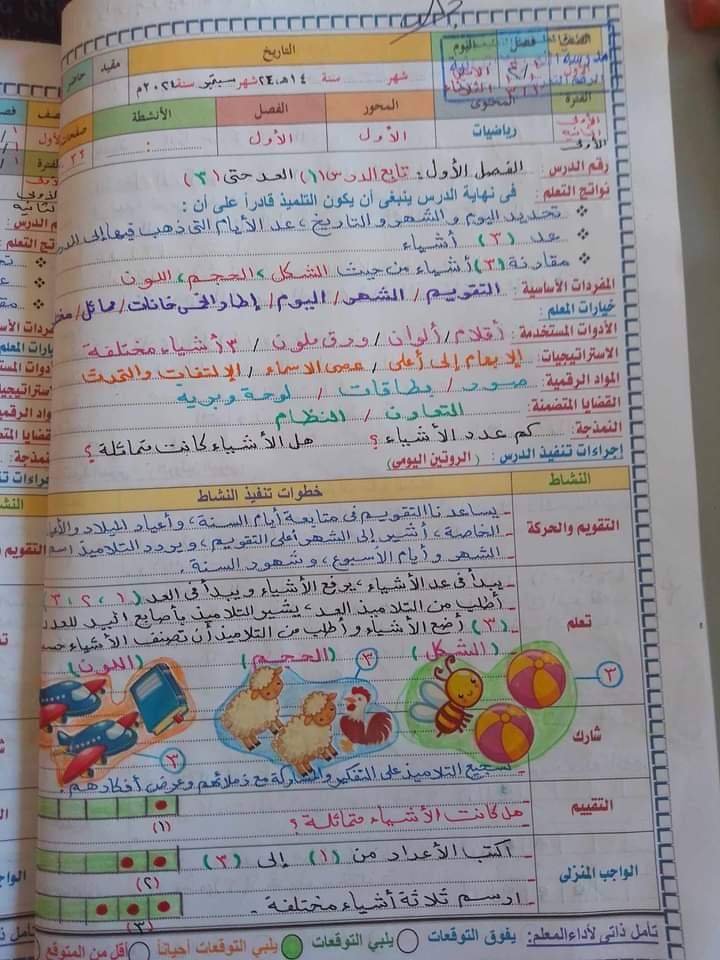 التاريخ
مقيد
حاضر
اليوم
فصل
شهر سنة ١٤هـ، ٢٤ شهر سبتمبر سنة ٢٠٢٤م
الفترة
المحتوى
المحور
الفصل
الأنشطة
صفحات
الأولى
الثانية
رياضيات
الأول
الأول
:
٢٢
رقم الدرس : الفصل الأول: تابع الدرس (١) العد حتى (٣)
نواتج التعلم : فى نهاية الدرس ينبغى أن يكون التلميذ قادراً على أن :
❖ تحديد اليوم والشهر والتاريخ، عد الأيام التى ذهب فيها إلى
❖ عد (٣) أشياء
❖ مقارنة (٣) أشياء من حيث الشكل، الحجم، اللون
المفردات الأساسية : التقويم / الشهر / اليوم / إطار الخمس خانات / مماثل /
خيارات المعلم :
الأدوات المستخدمة : أقلام / ألوان / ورق ملون / ٣ أشياء مختلفة
الاستراتيجيات : الإبهام إلى أعلى / عصى الأسماء / الإلتفات والتحدث
المواد الرقمية : صور / بطاقات / لوحة وبرية
القضايا المتضمنة : التعاون / النظام
النمذجة : كم عدد الأشياء ؟ هل الأشياء كانت متماثلة ؟
إجراءات تنفيذ الدرس : (الروتين اليومى)
النشاط
خطوات تنفيذ النشاط
التقويم والحركة
- يساعدنا التقويم فى متابعة أيام السنة، وأعياد الميلاد
الخاصة، أشير إلى الشهر أعلى التقويم، ويردد التلاميذ
الشهر وأيام الأسبوع، وشهور السنة.
تعلم
- يبدأ فى عد الأشياء، يرفع الأشياء ويبدأ فى العد (١، ٢، ٣)
- أطلب من التلاميذ العد، يشير التلاميذ بأصابع اليد للعدد
(٣) أضع الأشياء وأطلب من التلاميذ أن تصنف الأشياء
(الشكل) (الحجم) (اللون)
٣
٣
٣
شارك
- تشجيع التلاميذ على التفكير والمشاركة مع زملائهم وعرض أفكارهم.
التقييم
هل كانت الأشياء متماثلة ؟
(١)
الواجب المنزلى
- اكتب الأعداد من (١) إلى (٣)
(٢)
- ارسم ثلاثة أشياء مختلفة .
(٣)
تأمل ذاتى لأداء المعلم: يفوق التوقعات يلبي التوقعات يلبي التوقعات أحياناً أقل من المتوقع